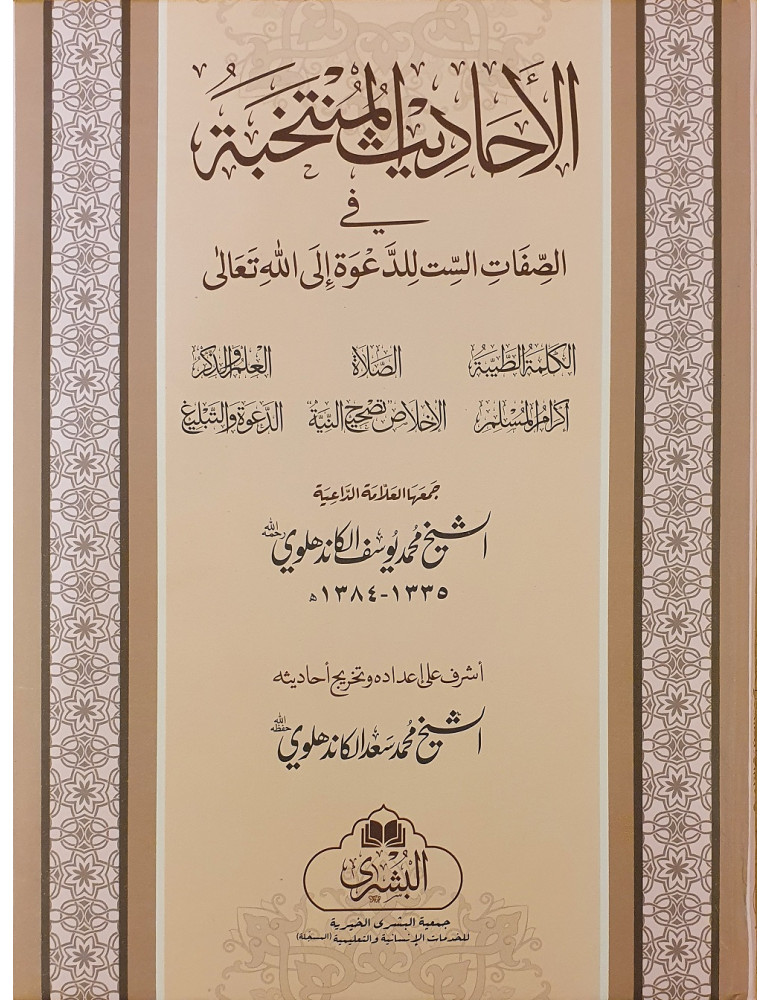 الأَحَادِيثُ المُنتَخَبَةُ
فِي
الصِّفَاتِ السِّت لِلدَّعْوَة إِلَى اللهِ تَعَالى
الكَلِمَةُ الطَّيِّبَةُ الصَّلاَةُ العِلْمُ وَالذِّكْرُ
إِكْرَامُ المُسْلِم الإِخْلاَصُ تَصْحِيحُ النِّيَّةِ الدَّعْوَةُ وَالتَّبْلِيغ
جَمَعَهَا العَلاَّمَة الدَّاعِيَة
الشيخ مُحَمَّد يُوسُف الكاندهلوي رحمه الله
١٣٣٥-١٣٨٤ه
أشرف على إعداده وتخريج أحاديثه
الشيخ مُحَمَّد سَعَد الكاندهلوي حفظه الله
البُشْرى
جمعية البشرى الخيرية
للخدمات الإنسانية والتعليمية (المسجلة)